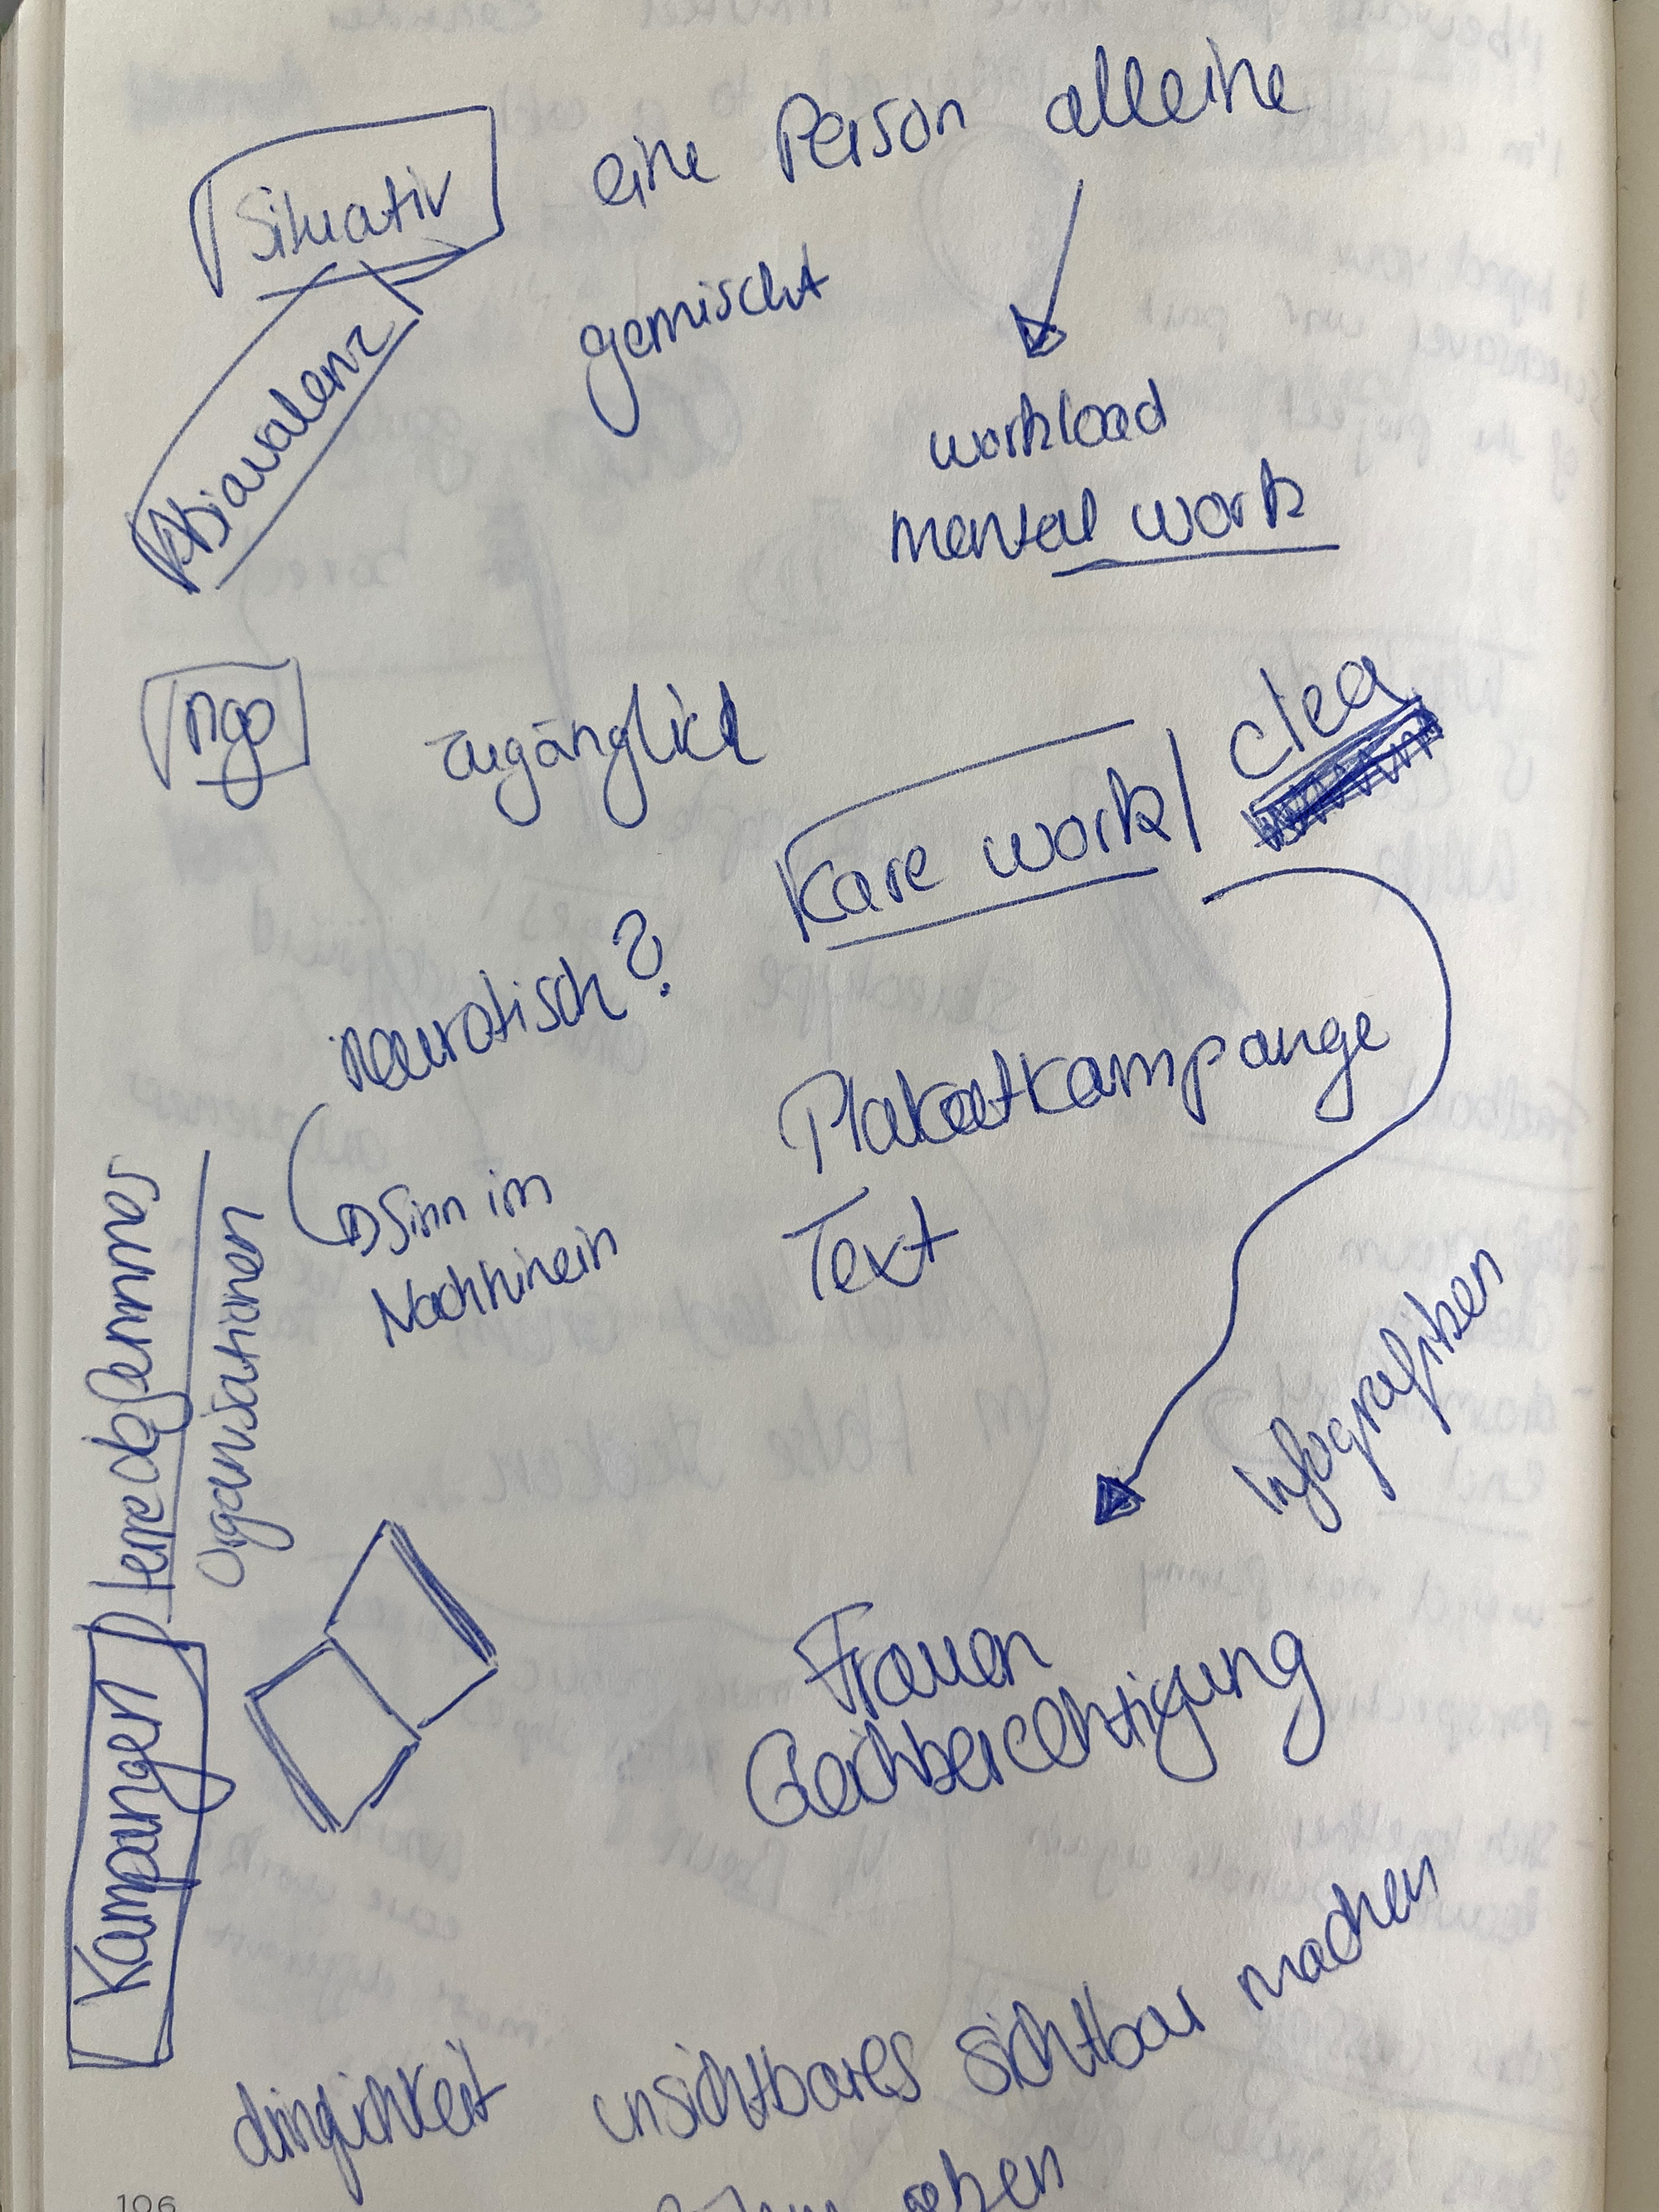 Situativ eine Person alleine
gemischt
workload
mental work
ngo
zugänglich
Kare work
clea
neurotisch?
Sinn im
Nachhinein
Plakatkampange
Text
Infografiken
Organisationen
Kampangen
Frauen
Gleichberechtigung
dringlichkeit unsichtbares sichtbar machen
geben
106